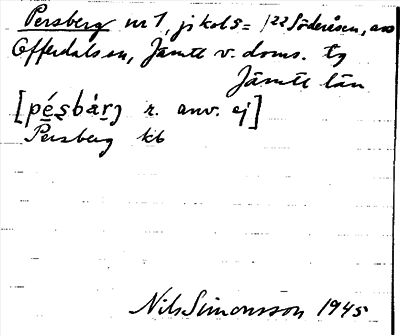 Persberg nr 1, jr kol 5 = 1²² Söderåsen, avs
Offerdals sn, Jämtl v. doms. tg
Jämtl län
[pésbár̲j r. anv. ej]
Persberg kb
Nils Simonsson 1945